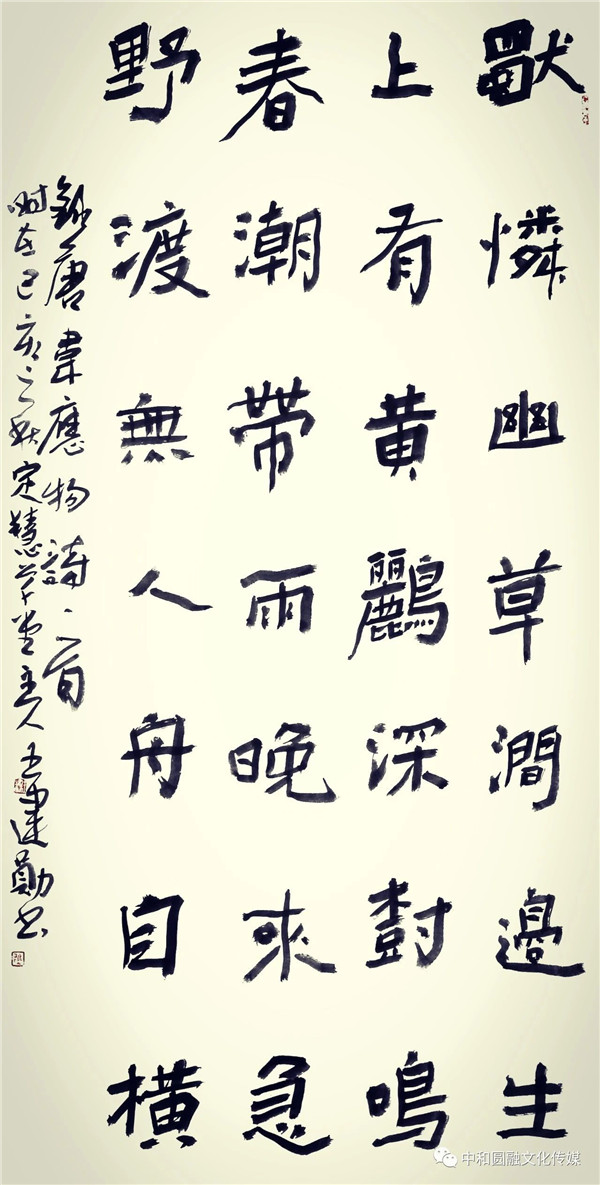 獨憐幽草澗邊生
上有黄鸝深樹鳴
春潮帶雨晚來急
野渡無人舟自橫
錄唐韋應物詩一首
時在己亥之秋定慧草堂主人王建勛書
中和圆融文化传媒